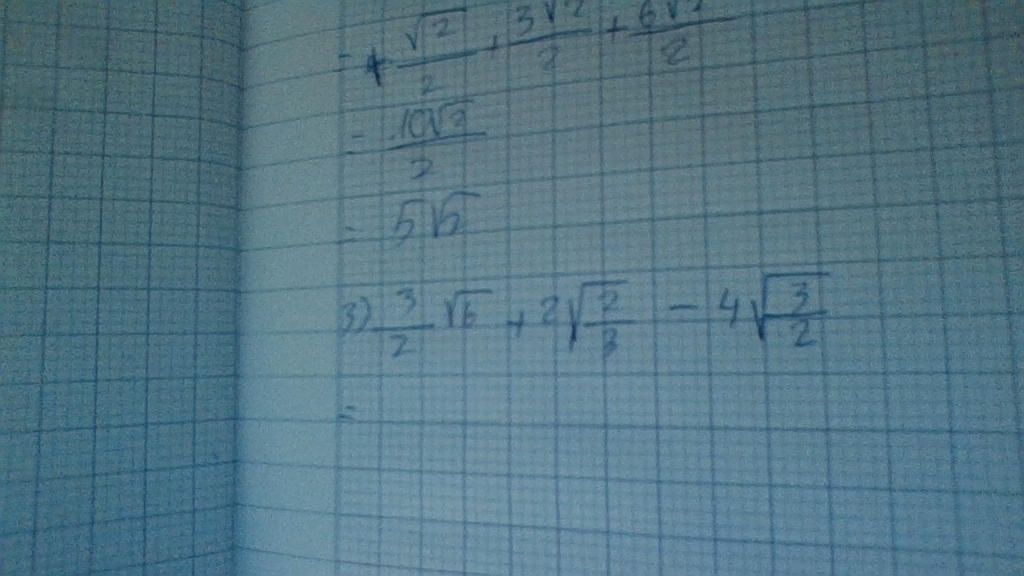 = + √2/2 + 3√2/2 + 6√2/2
= 10√2/2
= 5√5
3) 3/2 √6 + 2√(2/3) - 4√(3/2)
=